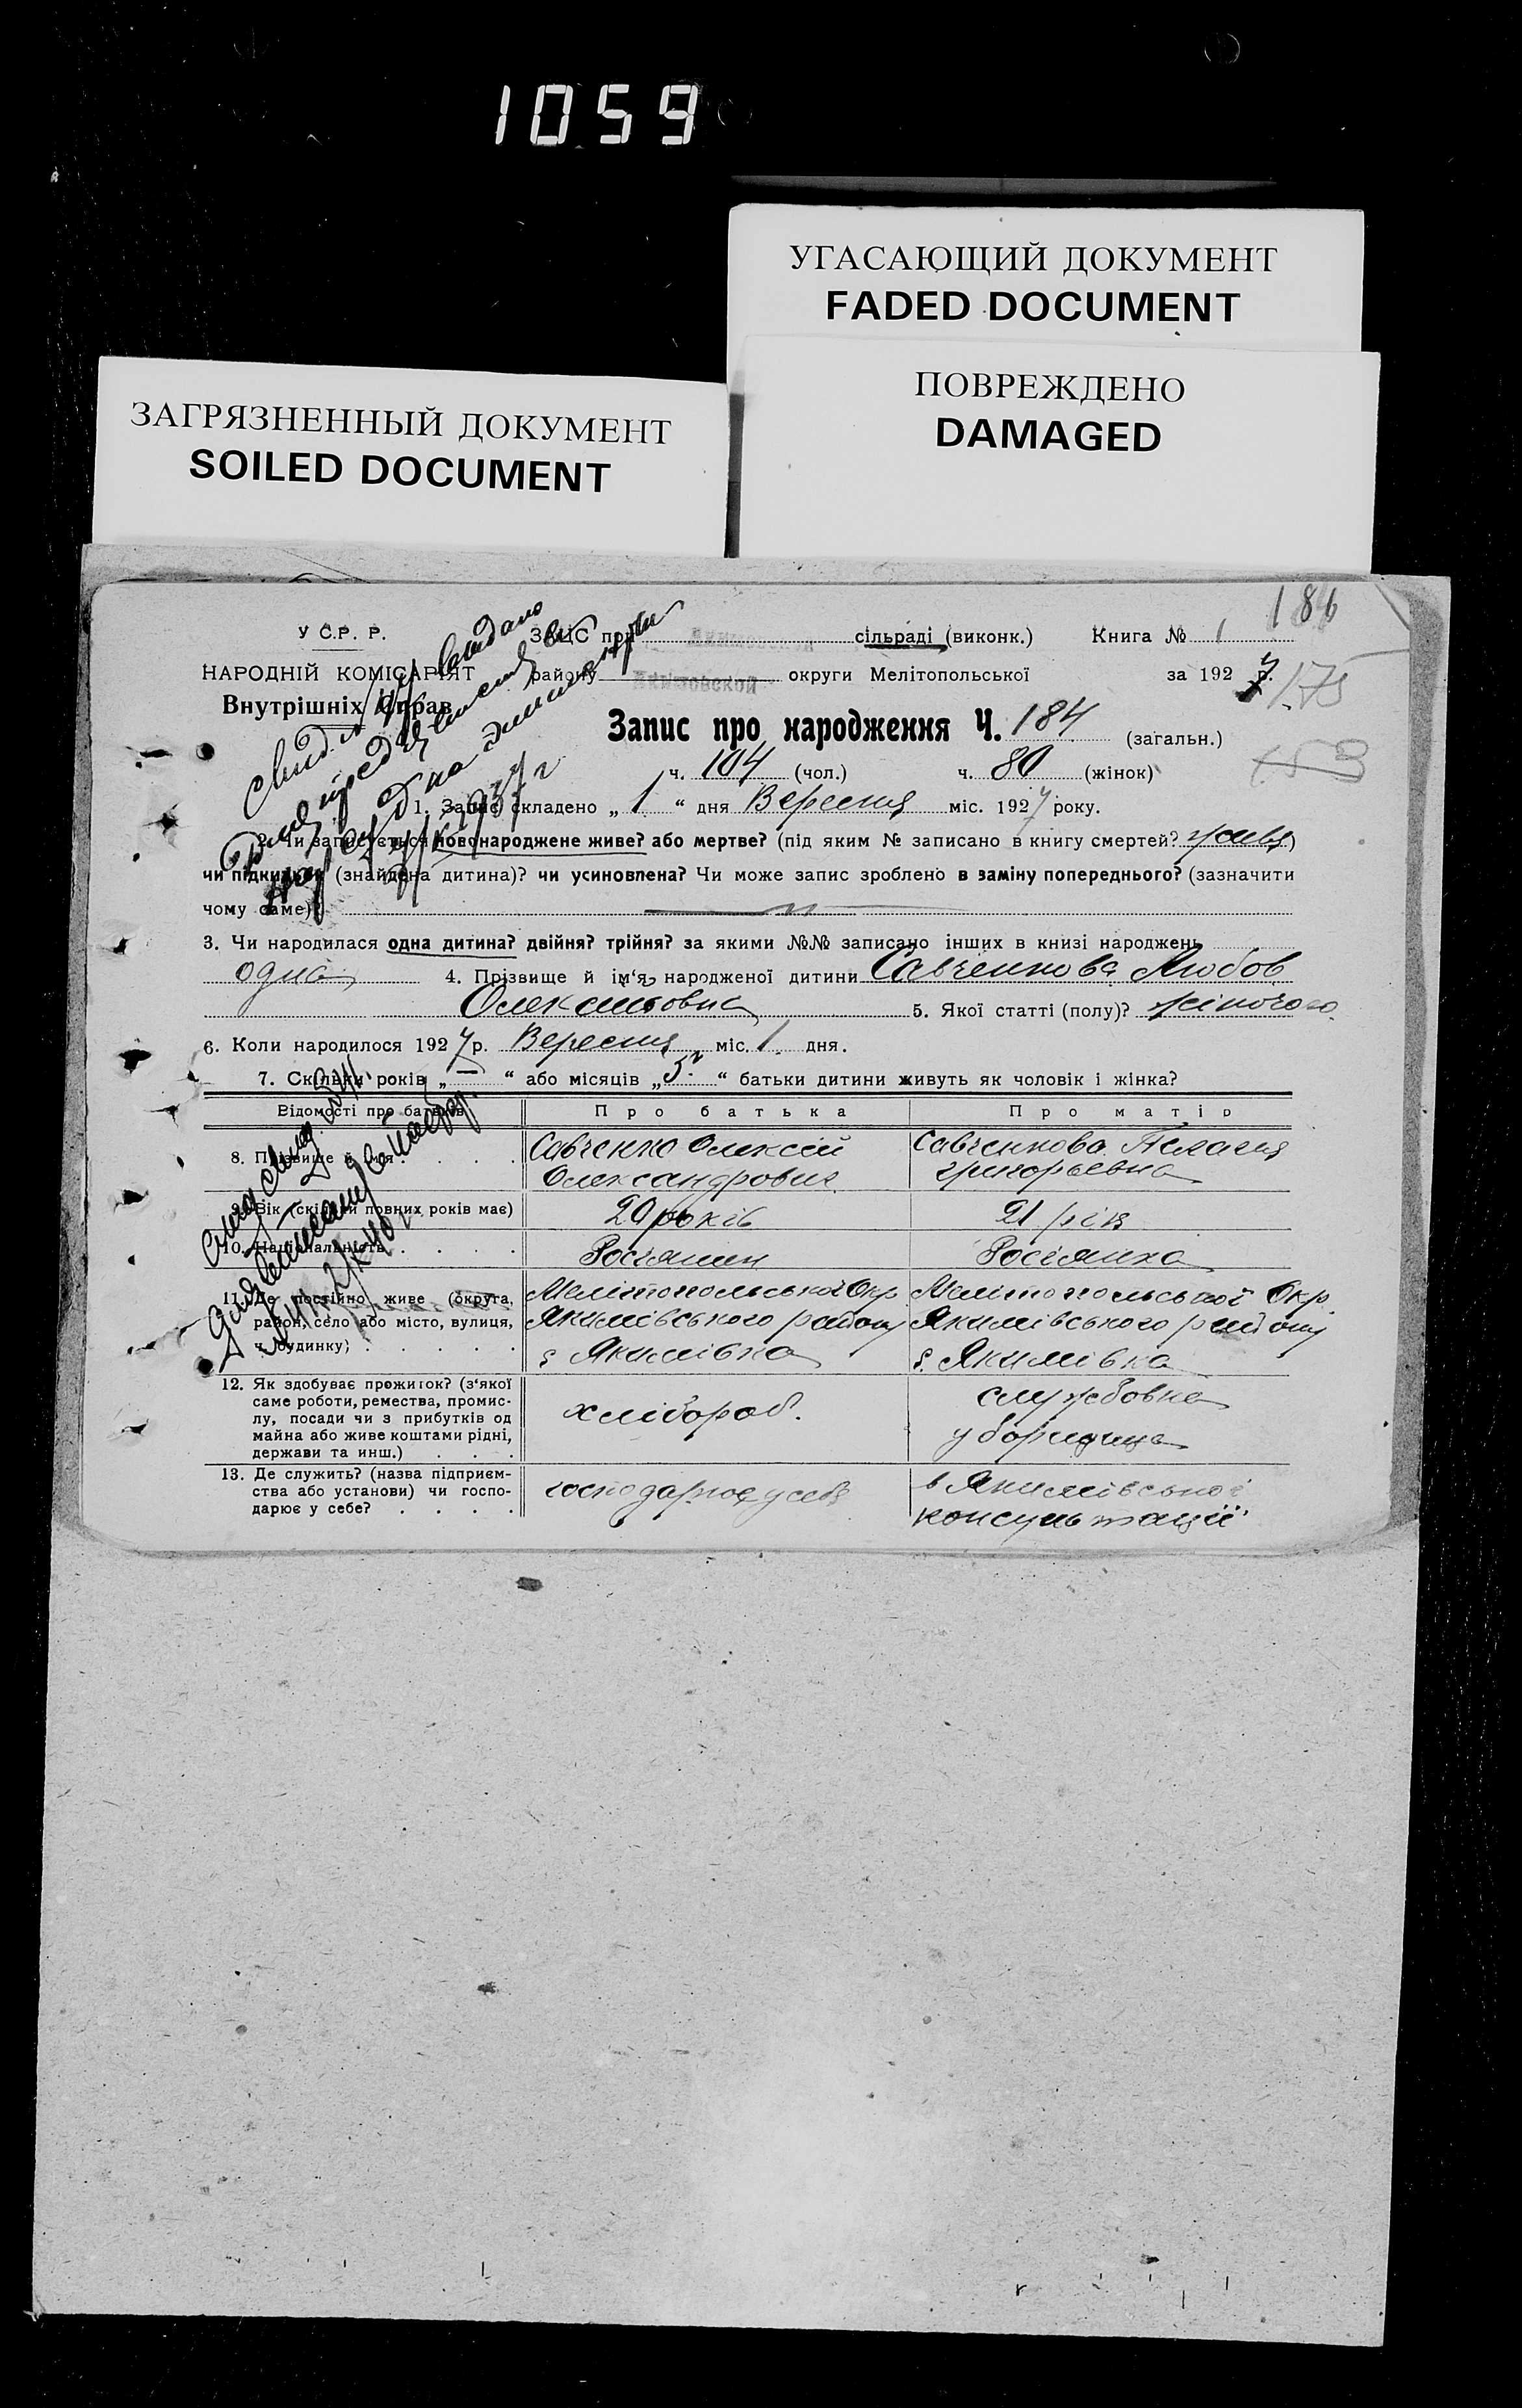 1059
УГАСАЮЩИЙ ДОКУМЕНТ
FADED DOCUMENT
ПОВРЕЖДЕНО
DAMAGED
ЗАГРЯЗНЕННЫЙ ДОКУМЕНТ
SOILED DOCUMENT
186
У С.Р. Р. ЗАГС при сільраді (виконк.) Книга № 1
НАРОДНІЙ КОМІСАРІЯТ району Акимовской округи Мелітопольської за 1927 р. 175
Внутрішніх Справ
Запис про народження Ч. 184 (загальн.)
153
ч. 104 (чол.) ч. 80 (жінок)
1. Запис складено „ 1 “ дня Вересня міс. 1927 року.
2. Чи записується новонароджене живе? або мертве? (під яким № записано в книгу смертей? живе)
чи підкидьок (знайдена дитина)? чи усиновлена? Чи може запис зроблено в заміну попереднього? (зазначити
чому саме)
3. Чи народилася одна дитина? двійня? трійня? за якими №№ записано інших в книзі народжень
одна 4. Прізвище й ім‘я народженої дитини Савченкова Любов
Олексіївна 5. Якої статті (полу)? жіночого
6. Коли народилося 1927 р. Вересня міс. 1 дня.
7. Скільки років „ — “ або місяців „ 5 “ батьки дитини живуть як чоловік і жінка?
Відомості про батьків Про батька Про матір
8. Прізвище й імя . . . . . Савченко Олексій Савченкова Пелагия
Олександрович Григорьевна
9. Вік (скільки повних років має) 20 років 21 рік
10. Національність . . . . Росіянин Росіянка
11. Де постійно живе (округа, Мелітопольської Окр. Мелітопольської Окр.
район, село або місто, вулиця, Якимівського району Якимівського району
ч. будинку) . . . . . с. Якимівка с. Якимівка
12. Як здобуває прожиток? (з‘якої
саме роботи, ремества, промис- хлібороб. службовка
лу, посади чи з прибутків од
майна або живе коштами рідні, уборщица
держави та инш.) . . .
13. Де служить? (назва підприєм- господарює у себе в Якимівської
ства або установи) чи госпо- консультації
дарює у себе? . . . .